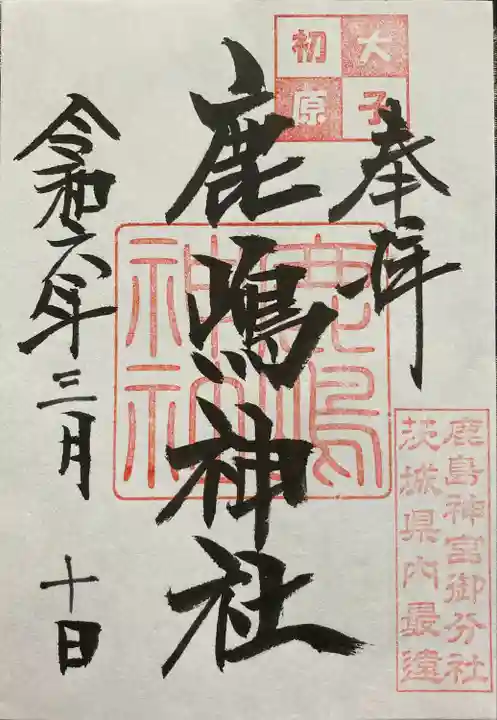 大子
初原
奉拝
鹿嶋神社
鹿嶋
神社
鹿島神宮御分社
茨城県内最遠
令和六年三月十日